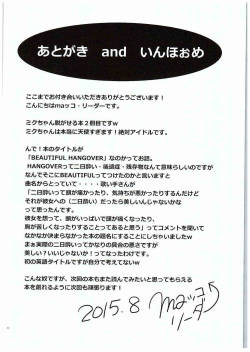 あとがき and いんほぉめ
ここまでお付き合いいただきありがとうございます!
こんにちはmaッコ・リーダーです。
ミクちゃん脱がせる本2冊目ですw
ミクちゃんは本当に天使すぎます!絶対アイドルです。
んで!本のタイトルが
「BEAUTIFUL HANGOVER」なのかってお話。
HANGOVERって二日酔い・後遺症・残存物なんて意味らしいのですが
なんでそこにBEAUTIFULってつけたのかと言いますと
曲名からとっていて・・・・歌い手さんが
「二日酔いって頭が痛かったり、気持ちが悪かったりするんだけど
それが彼女への(二日酔い)だったら美しいんじゃないかな
って思ったんです。
彼女を想って、頭がいっぱいで頭が痛くなったり、
胸が苦しくなったりすることってあると思う」ってコメントを聞いて
なかなか決まらなかった本の題名にすることにしちゃいましたw
まぁ実際の二日酔いでかなりの具合の悪さですが
美しい!いいじゃないか!ってなったわけです。
初の英語タイトルですが自分で考えてないw
こんな奴ですが、次回の本もまた読んでみたいと思ってもらえる
本を創れるように次回も頑張ります!
2015.8 maッコ
リーダー